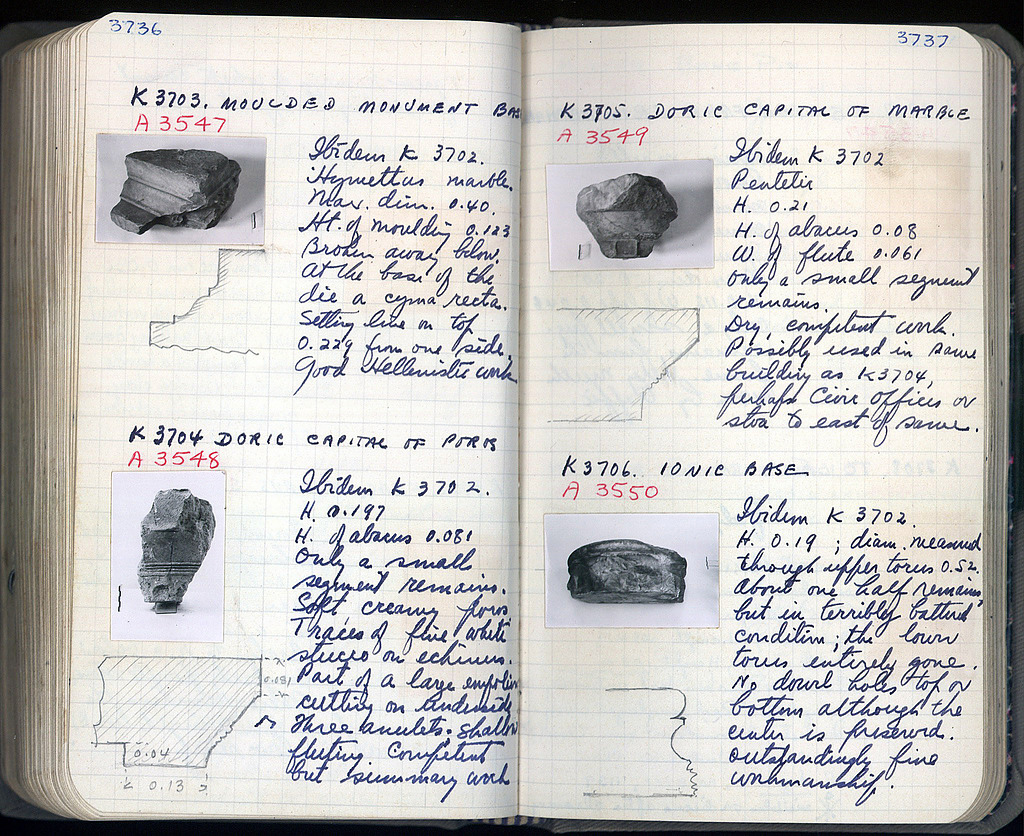 3736
K 3703. MOULDED MONUMENT BASE
A 3547
Ibidem K 3702.
Hymettus marble.
Max. dim. 0.40.
Ht. of moulding 0.123
Broken away below.
At the base of the
die a cyma recta.
Setting line on top
0.229 from one side.
Good Hellenistic work
K 3704 DORIC CAPITAL OF POROS
A 3548
Ibidem K 3702.
H. 0.197
H. of abacus 0.081
Only a small
segment remains.
Soft, creamy poros.
Traces of fine white
stucco on echinus.
Part of a large empolion
cutting on underside
Three annulets. Shallow
fluting. Competent
but summary work
0.081
0.04
0.13
3737
K 3705. DORIC CAPITAL OF MARBLE
A 3549
Ibidem K 3702
Pentelic
H. 0.21
H. of abacus 0.08
W. of flute 0.061
Only a small segment
remains.
Dry, competent work.
Possibly used in same
building as K3704,
perhaps Civic Offices or
stoa to east of same.
K3706. IONIC BASE
A 3550
Ibidem K 3702.
H. 0.19 ; diam. measured
through upper torus 0.52.
About one half remains
but in terribly battered
condition; the lower
torus entirely gone.
No dowel holes top or
bottom although the
center is preserved.
Outstandingly fine
workmanship.